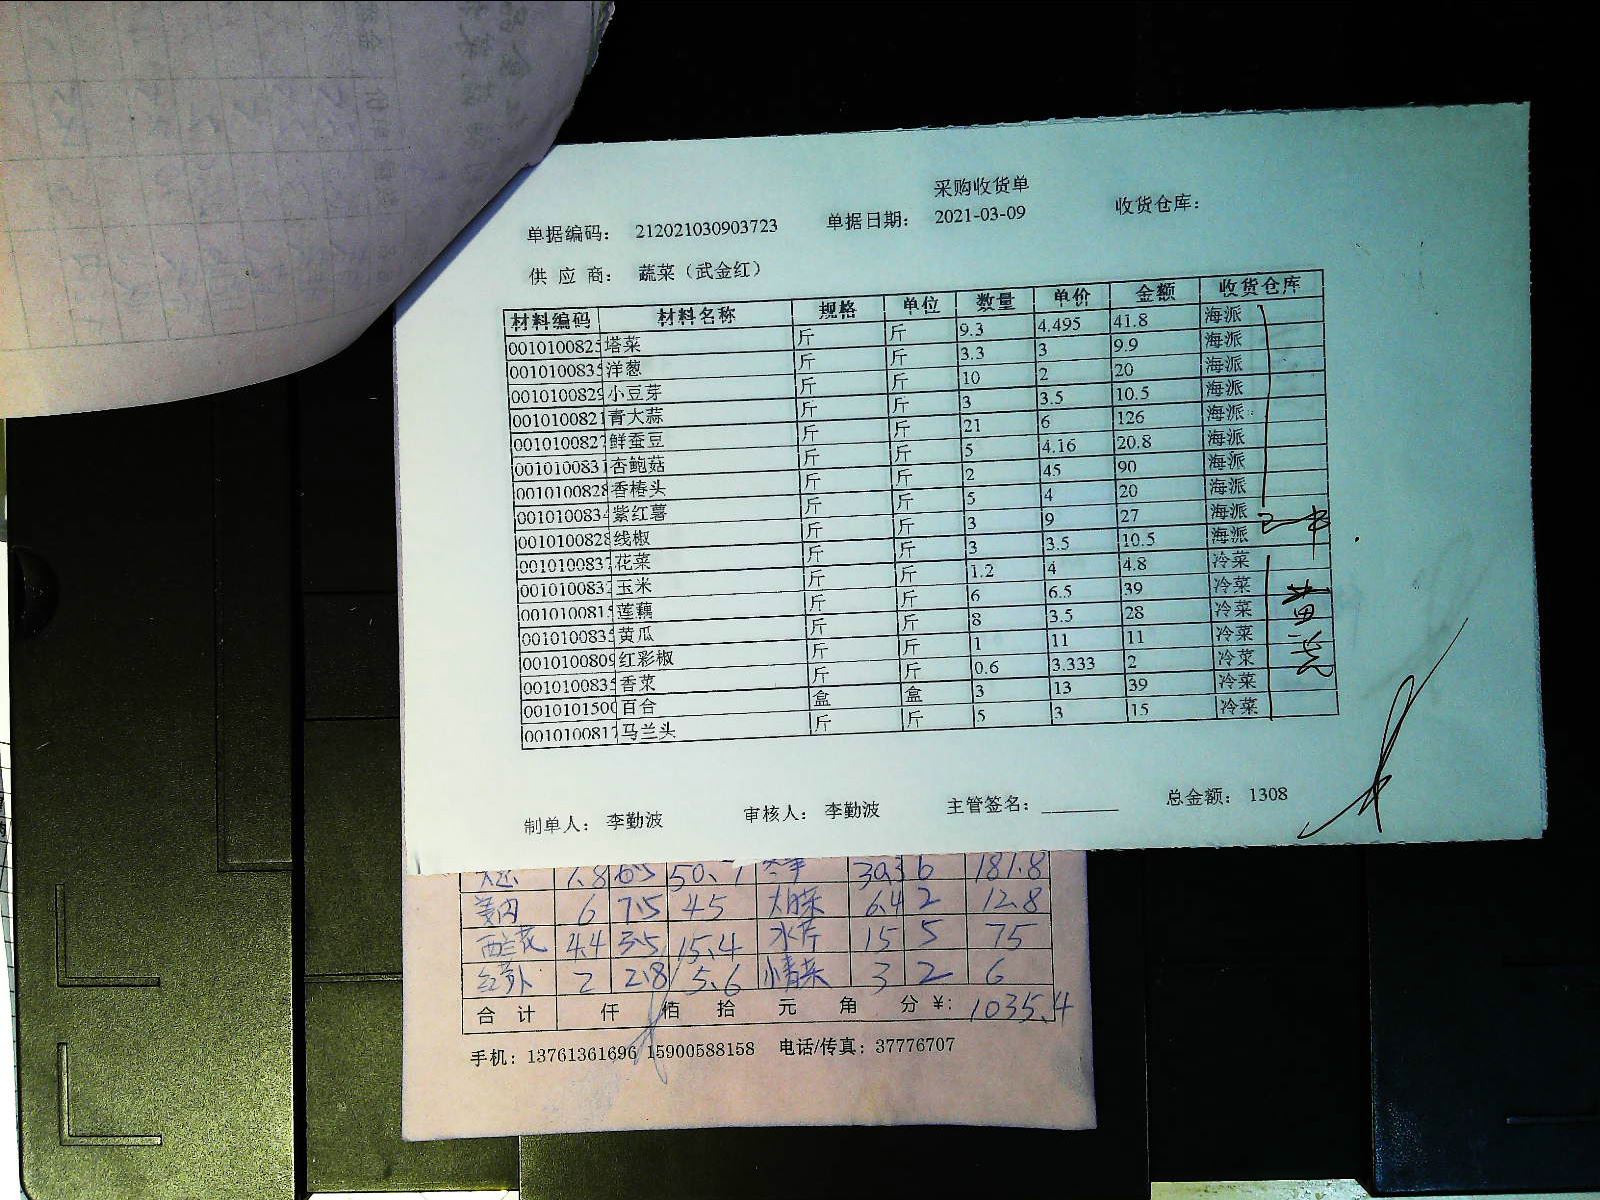 采购收货单
单据编码： 212021030903723 单据日期： 2021-03-09 收货仓库：
供 应 商： 蔬菜（武金红）
材料编码 材料名称 规格 单位 数量 单价 金额 收货仓库
0010100825 塔菜 斤 斤 9.3 4.495 41.8 海派
0010100835 洋葱 斤 斤 3.3 3 9.9 海派
0010100829 小豆芽 斤 斤 10 2 20 海派
0010100821 青大蒜 斤 斤 3 3.5 10.5 海派
0010100827 鲜蚕豆 斤 斤 21 6 126 海派
0010100831 杏鲍菇 斤 斤 5 4.16 20.8 海派
0010100828 香椿头 斤 斤 2 45 90 海派
0010100834 紫红薯 斤 斤 5 4 20 海派
0010100828 线椒 斤 斤 3 9 27 海派
0010100837 花菜 斤 斤 3 3.5 10.5 海派
0010100832 玉米 斤 斤 1.2 4 4.8 冷菜
0010100815 莲藕 斤 斤 6 6.5 39 冷菜
0010100835 黄瓜 斤 斤 8 3.5 28 冷菜
0010100809 红彩椒 斤 斤 1 11 11 冷菜
0010100835 香菜 斤 斤 0.6 3.333 2 冷菜
0010101500 百合 盒 盒 3 13 39 冷菜
0010100817 马兰头 斤 斤 5 3 15 冷菜
制单人： 李勤波 审核人： 李勤波 主管签名： 总金额： 1308
7.8 6.5 50.7 30.3 6 181.8
姜肉 6 7.5 45 6.4 2 12.8
西兰花 4.4 3.5 15.4 水芹 15 5 75
红萝卜 2 2.8 5.6 小青菜 3 2 6
合 计 仟 佰 拾 元 角 分 ¥: 1035.4
手机：13761361696 15900588158 电话/传真：37776707